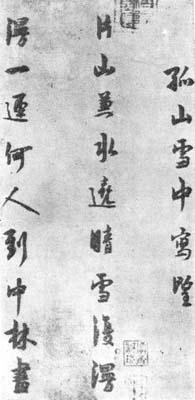 孤山雪中寫望
片山兼水遶晴雪復漫
漫一逕何人到中林盡